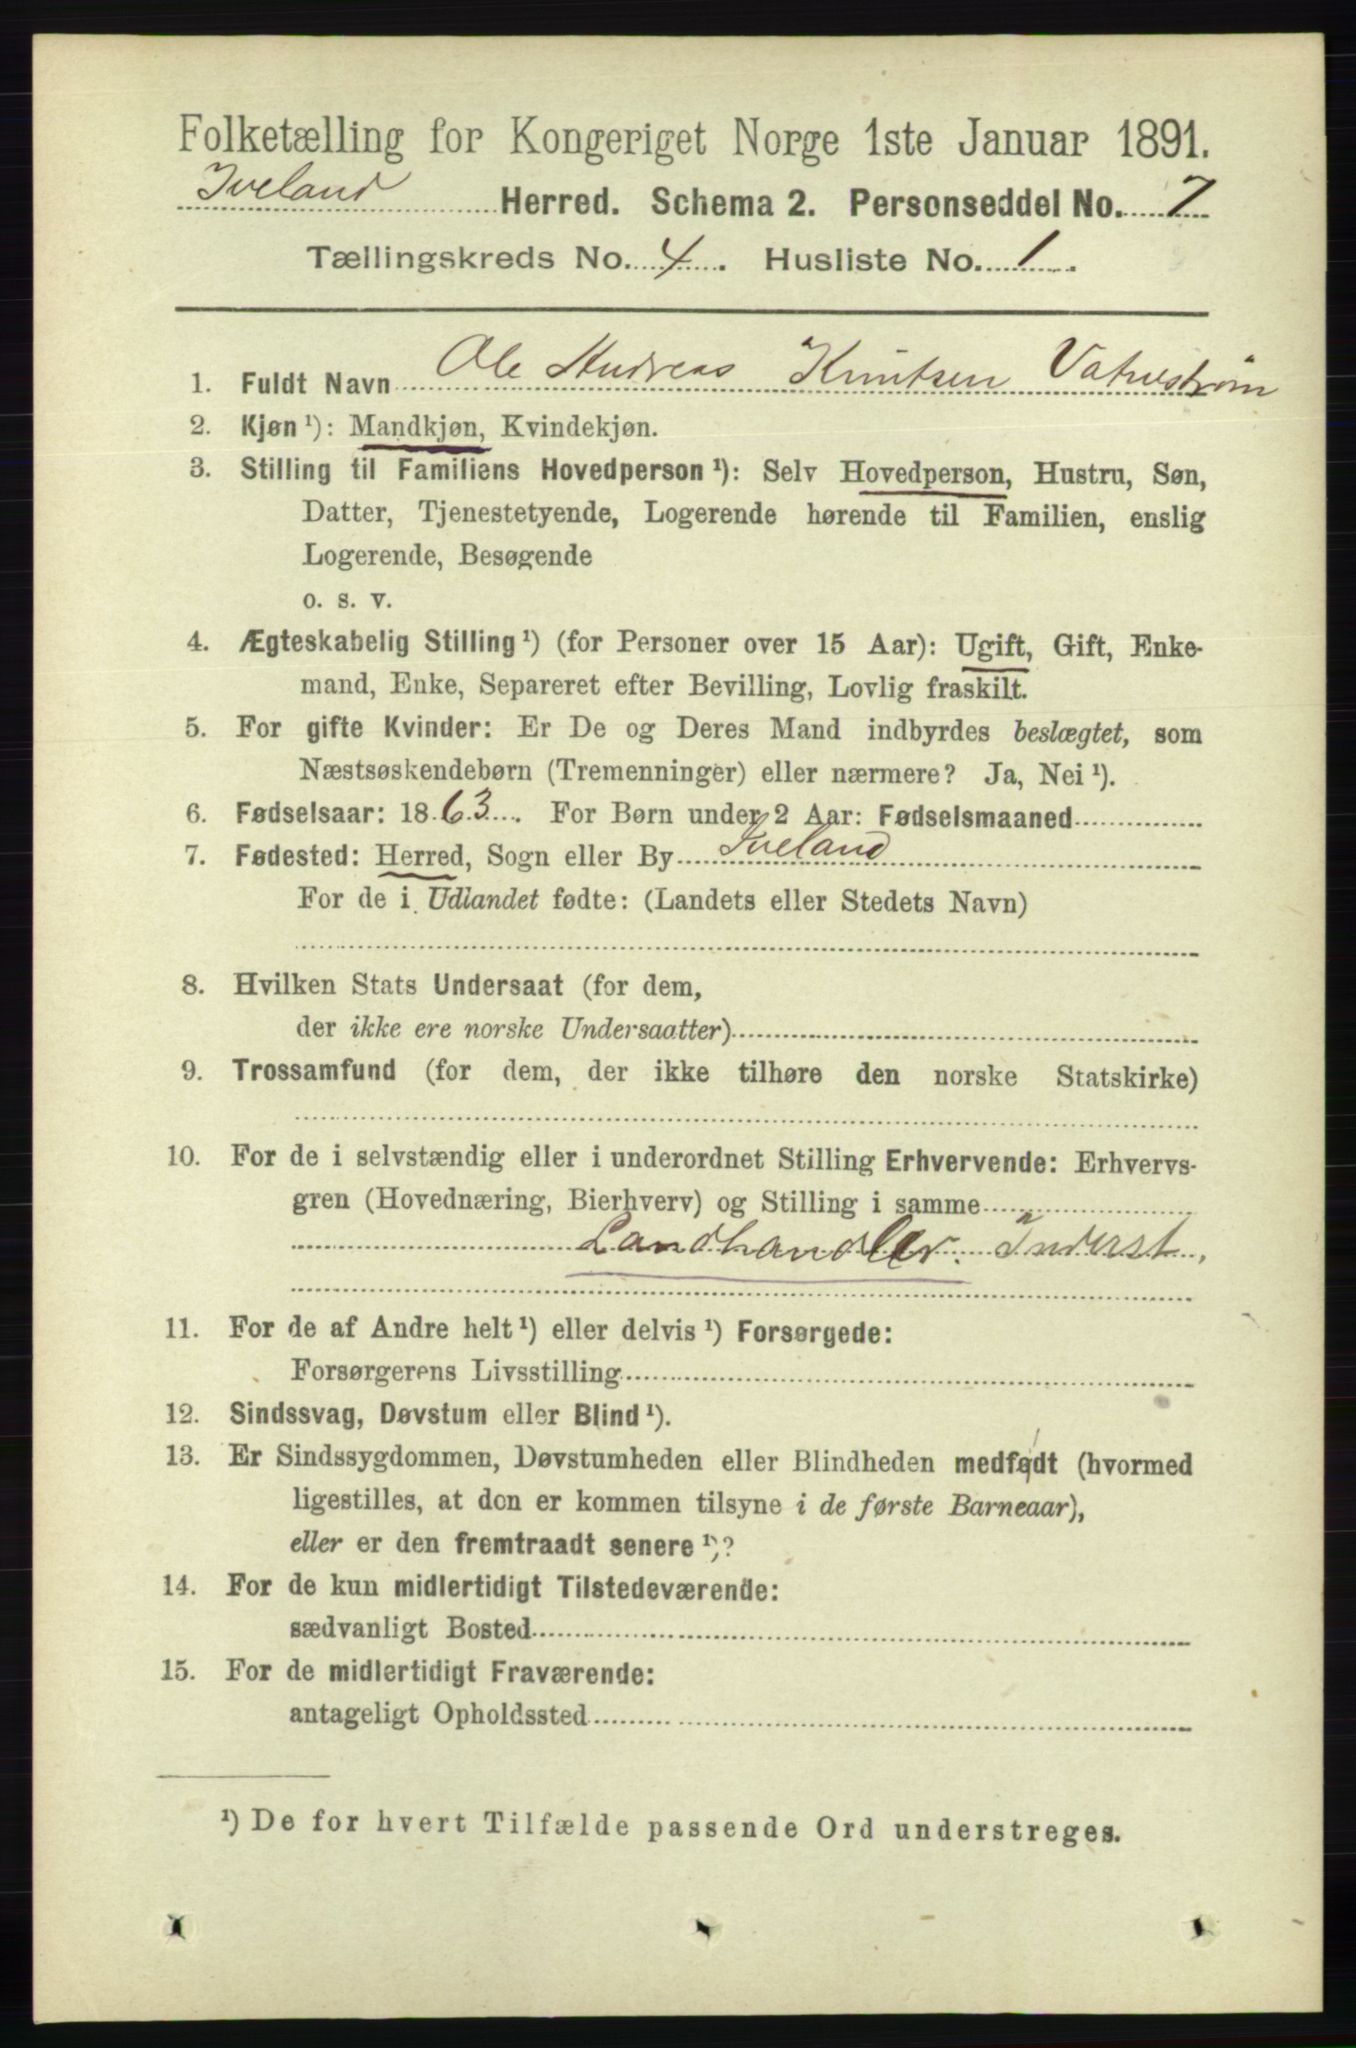 Folketælling for Kongeriget Norge 1ste Januar 1891.
Iveland Herred. Schema 2. Personseddel No. 7
Tællingskreds No. 4. Husliste No. 1.
1. Fuldt Navn Ole Andreas Knutsen Vatnstrøm
2. Kjøn ¹): Mandkjøn, Kvindekjøn.
3. Stilling til Familiens Hovedperson ¹): Selv Hovedperson, Hustru, Søn,
Datter, Tjenestetyende, Logerende hørende til Familien, enslig
Logerende, Besøgende
o. s. v.
4. Ægteskabelig Stilling ¹) (for Personer over 15 Aar): Ugift, Gift, Enke-
mand, Enke, Separeret efter Bevilling, Lovlig fraskilt.
5. For gifte Kvinder: Er De og Deres Mand indbyrdes beslægtet, som
Næstsøskendebørn (Tremenninger) eller nærmere? Ja, Nei ¹).
6. Fødselsaar: 1863. For Børn under 2 Aar: Fødselsmaaned
7. Fødested: Herred, Sogn eller By Iveland
For de i Udlandet fødte: (Landets eller Stedets Navn)
8. Hvilken Stats Undersaat (for dem,
der ikke ere norske Undersaatter)
9. Trossamfund (for dem, der ikke tilhøre den norske Statskirke)
10. For de i selvstændig eller i underordnet Stilling Erhvervende: Erhvervs-
gren (Hovednæring, Bierhverv) og Stilling i samme
Landhandler. Inderst.
11. For de af Andre helt ¹) eller delvis ¹) Forsørgede:
Forsørgerens Livsstilling
12. Sindssvag, Døvstum eller Blind ¹).
13. Er Sindssygdommen, Døvstumheden eller Blindheden medfødt (hvormed
ligestilles, at den er kommen tilsyne i de første Barneaar),
eller er den fremtraadt senere ¹)?
14. For de kun midlertidigt Tilstedeværende:
sædvanligt Bosted
15. For de midlertidigt Fraværende:
antageligt Opholdssted
¹) De for hvert Tilfælde passende Ord understreges.